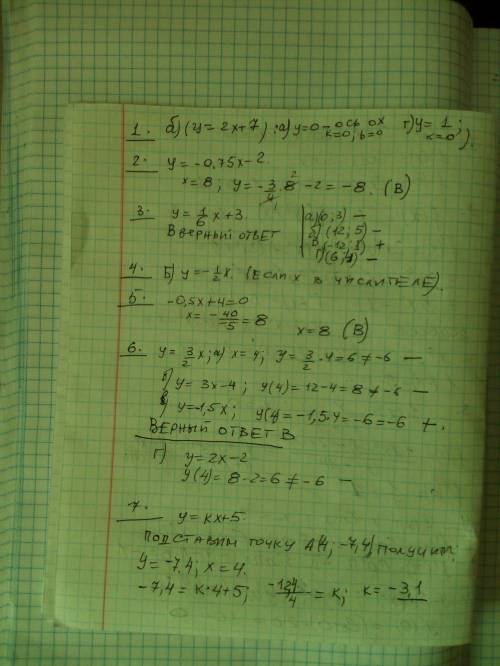 1. б) (y = 2x+7); а) y=0 – ось ox k=0; b=0 г) y = 1; k=0
2. y = -0,75x-2
x=8; y = -3/4 · 8 -2 = -8. (В)
3. y = 1/6 x + 3. а) (0, 3) –
В верный ответ б) (12; 5) –
в) (-12; 1) +
г) (6; 4) –
4. Б) y = -1/2 x. (если x в числителе).
5. -0,5x+4=0
x = -40/-5 = 8 x=8 (В)
6. y = 3/2 x; а) x=4; y = 3/2 · 4 = 6 ≠ -6 –
б) y = 3x-4; y(4) = 12-4=8 ≠ -6 –
в) y=-1,5x; y(4)=-1,5·4=-6=-6 +.
Верный ответ В
г) y=2x-2
y(4)= 8-2=6 ≠ -6 –
7. y = kx+5.
Подставим точку A(4; -7,4) получим:
y = -7,4; x = 4.
-7,4 = k·4+5; -12,4/4 = k; k = -3,1